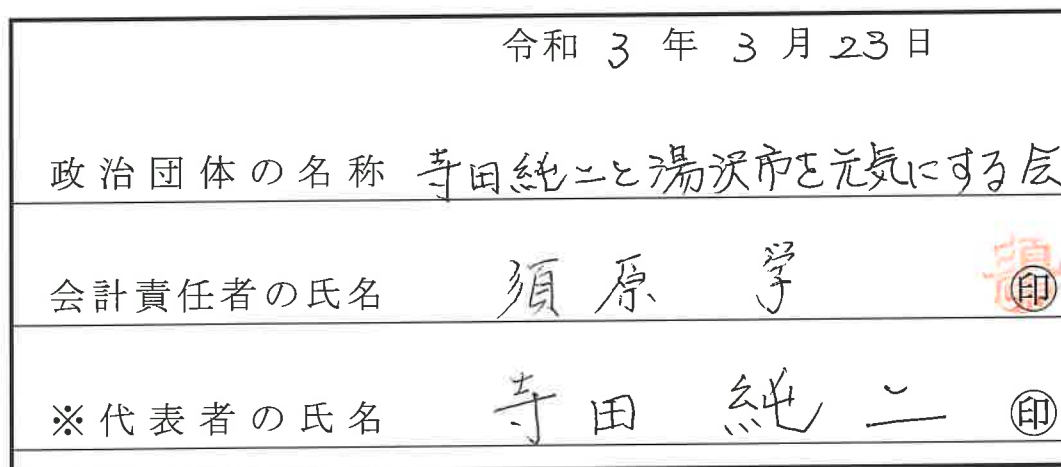 令和 3 年 3 月 23 日
政治団体の名称 寺田純二と湯沢市を元気にする会
会計責任者の氏名 須原 学 印
※代表者の氏名 寺田 純二 印